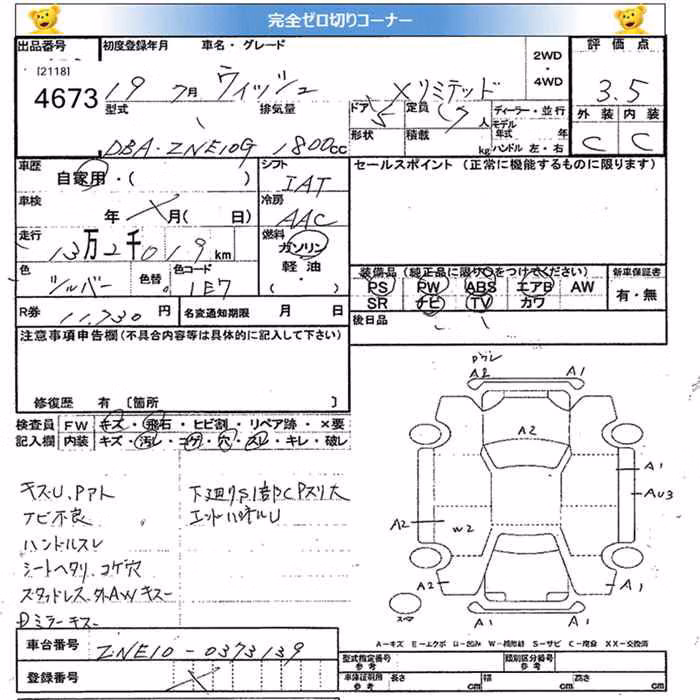 完全ゼロ切りコーナー
出品番号 初度登録年月 車名・グレード 2WD・4WD 評価点
[2118]
4673
19 7月 ウィッシュ Xリミテッド 3.5
型式 排気量 ドア 5 定員 人 ディーラー・並行 外装 内装
形状 積載 kg モデル年式 年 ハンドル 左・右 C C
DBA-ZNE10G 1800cc
車歴 自家用・( ) シフト IAT セールスポイント(正常に機能するものに限ります)
車検 年 月( 日) 冷房 AAC
走行 13万2千019km 燃料 ガソリン
軽油
・( )
色 シルバー 色替 色コード 1E7
装備品(純正品に限り○をつけてください) 新車保証書
PS PW ABS エアB AW 有・無
SR ナビ TV カワ
R券 11,730円 名変通知期限 月 日 後日品
注意事項申告欄(不具合内容等は具体的に記入して下さい)
修復歴 有 〔箇所 〕
検査員 FW キズ・飛石・ヒビ割・リペア跡・×要
記入欄 内装 キズ・汚レ・コゲ・穴・スレ・キレ・破レ
キズU,Pアト
ナビ不良
ハンドルスレ
シートヘタリ、コゲ穴
スタッドレス、外AWキズー
Dミラーキズー
下廻りS1部CPスリ大
エンドパネルU
A2 A1
A2
A1
AU3
A2 W2
A2 A1
スペア
A1 A1
A-キズ E-エクボ U-凹み W-補修跡 S-サビ C-腐食 XX-交換済
車台番号 ZNE10-0373139
登録番号
型式指定番号 参考 類別区分番号 参考
車庫証明用 参考 長さ cm 幅 cm 高さ cm